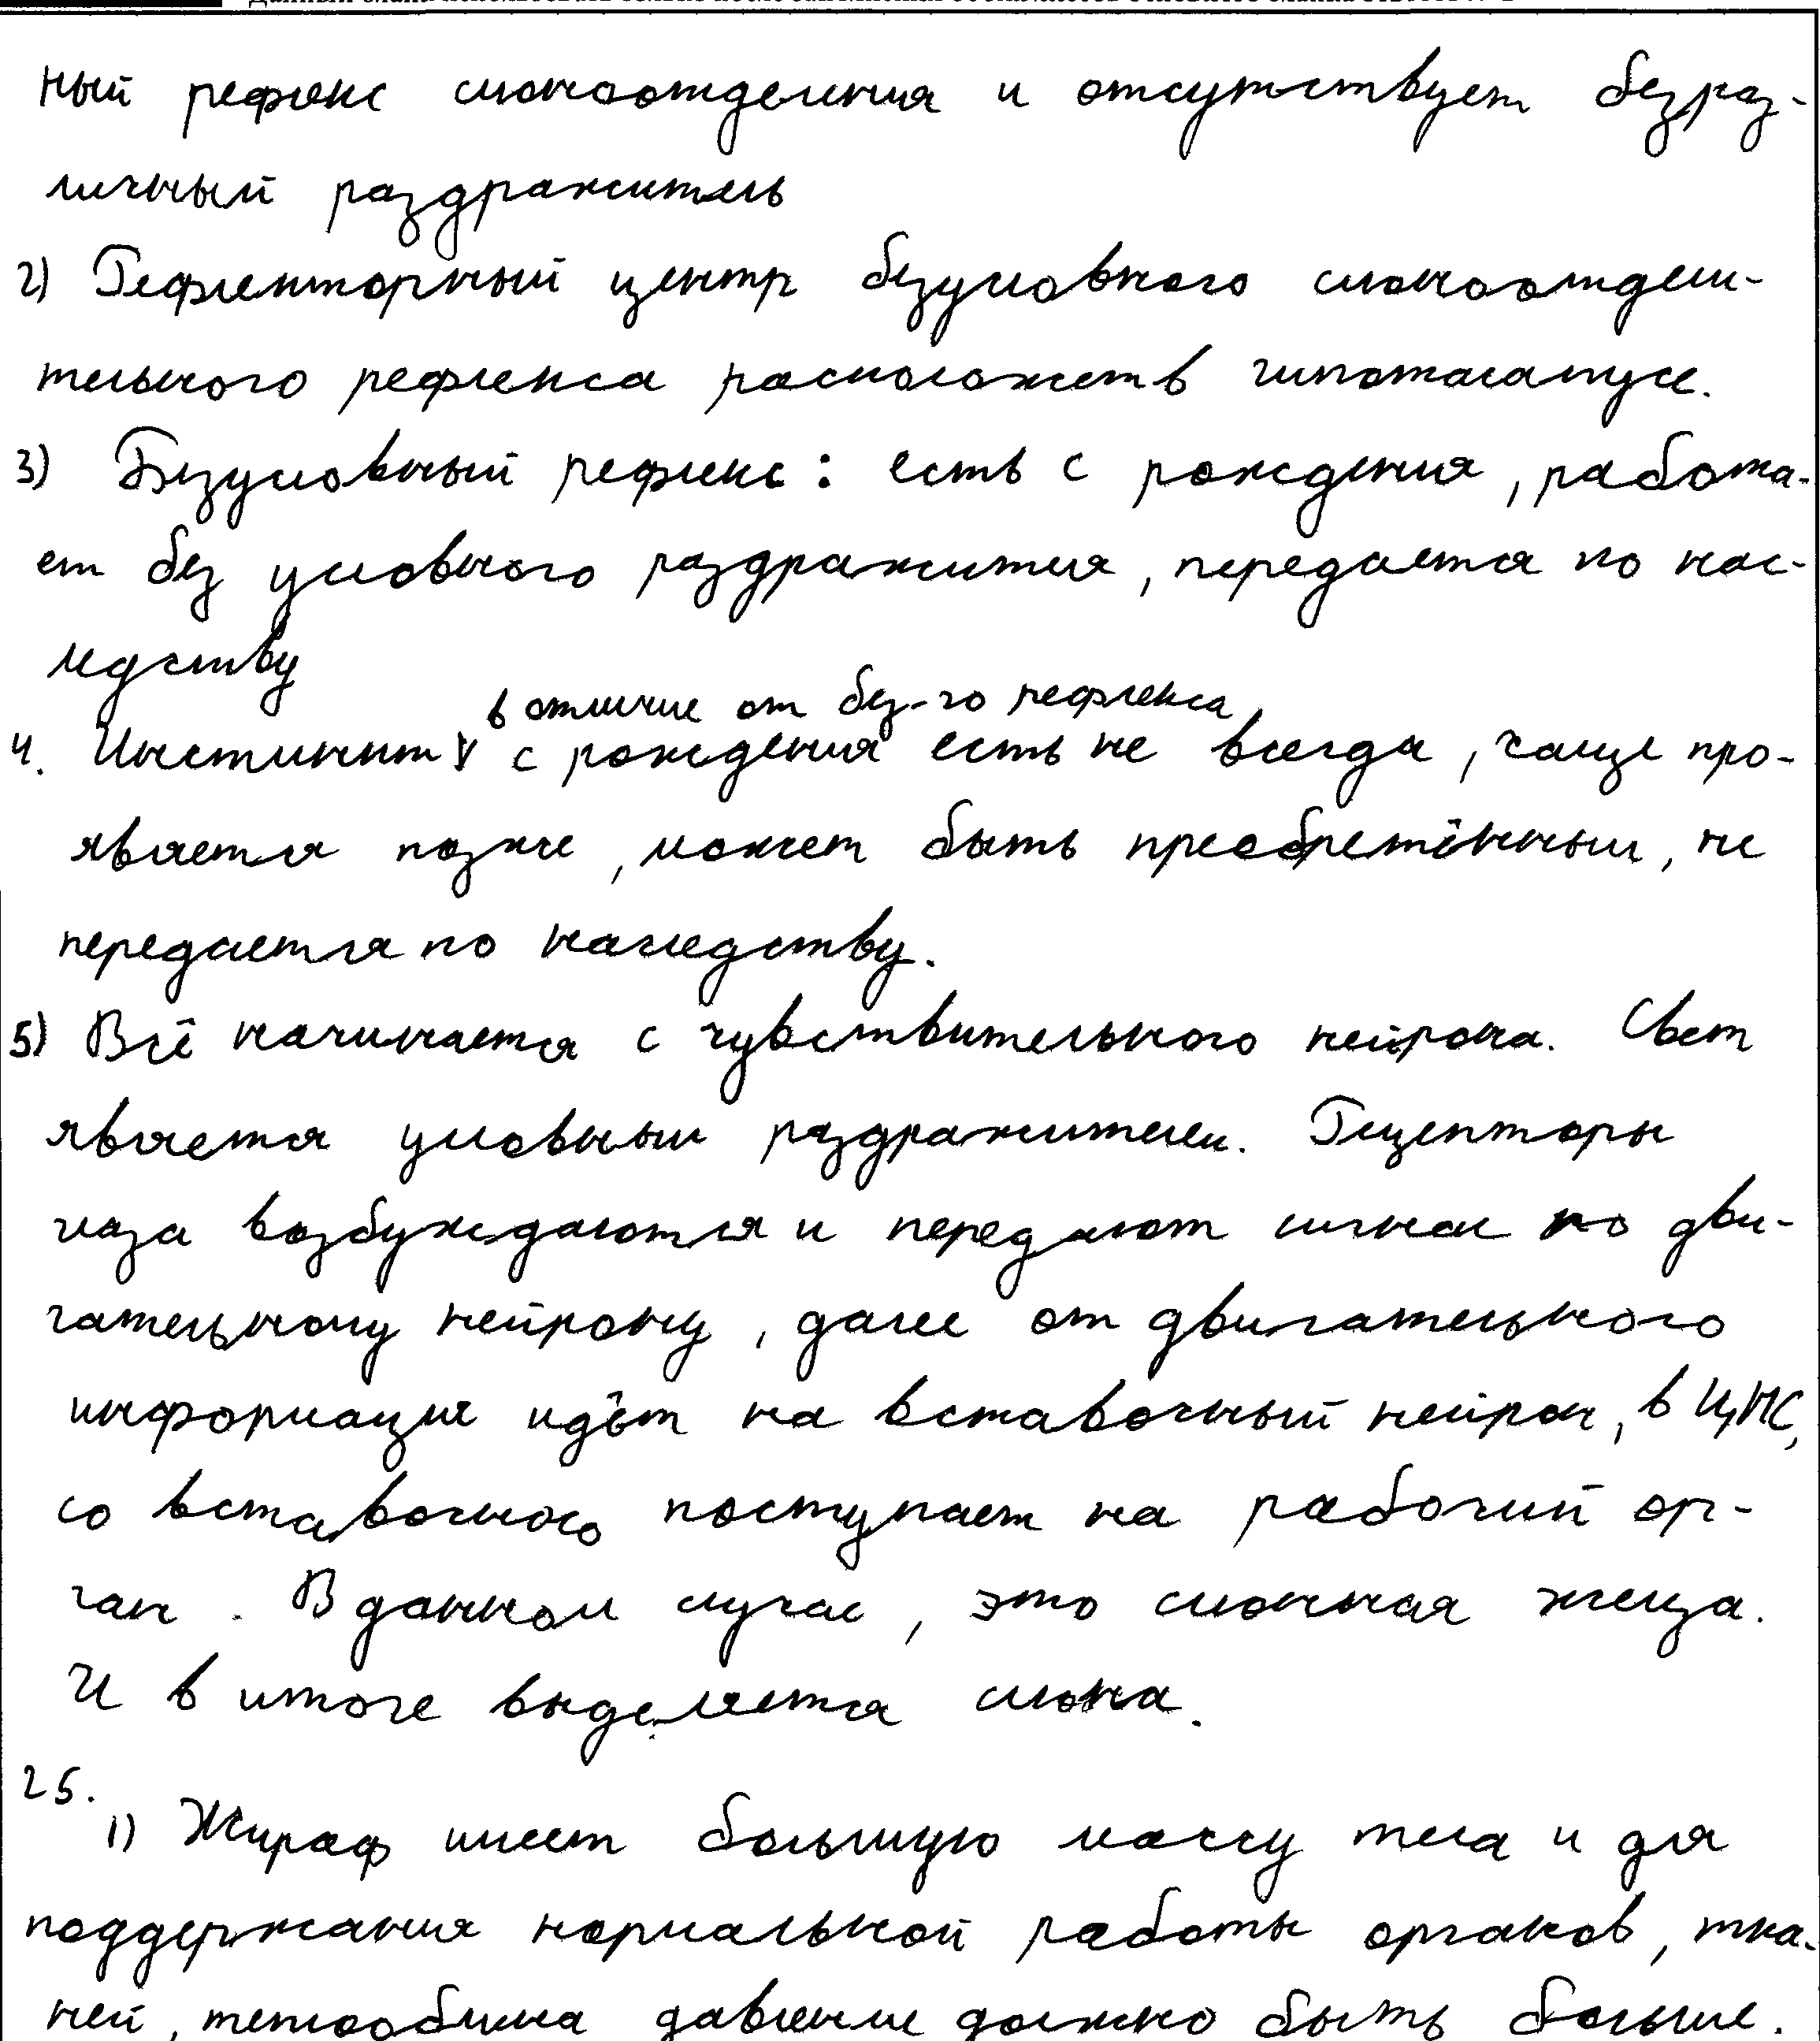 ный рефлекс слюноотделения и отсутствует безраз-
личный раздражитель
2) Рефлекторный центр безусловного слюноотдели-
тельного рефлекса расположен в гипоталамусе.
3) Безусловный рефлекс: есть с рождения, работа-
ет без условного раздражителя, передается по нас-
ледству
в отличие от без-го рефлекса
4. Инстинкт V с рождения есть не всегда, чаще про-
является позже, может быть преобретённым, не
передается по наследству.
5) Всё начинается с чувствительного нейрона. Свет
является условным раздражителем. Рецепторы
глаза возбуждаются и передают сигнал по дви-
гательному нейрону, далее от двигательного
информация идёт на вставочный нейрон, в ЦНС,
со вставочного поступает на рабочий ор-
ган. В данном случае, это слюнная железа.
И в итоге выделяется слюна.
25.
1) Жираф имеет большую массу тела и для
поддержания нормальной работы органов, тка-
ней, теплообмена давление должно быть больше.